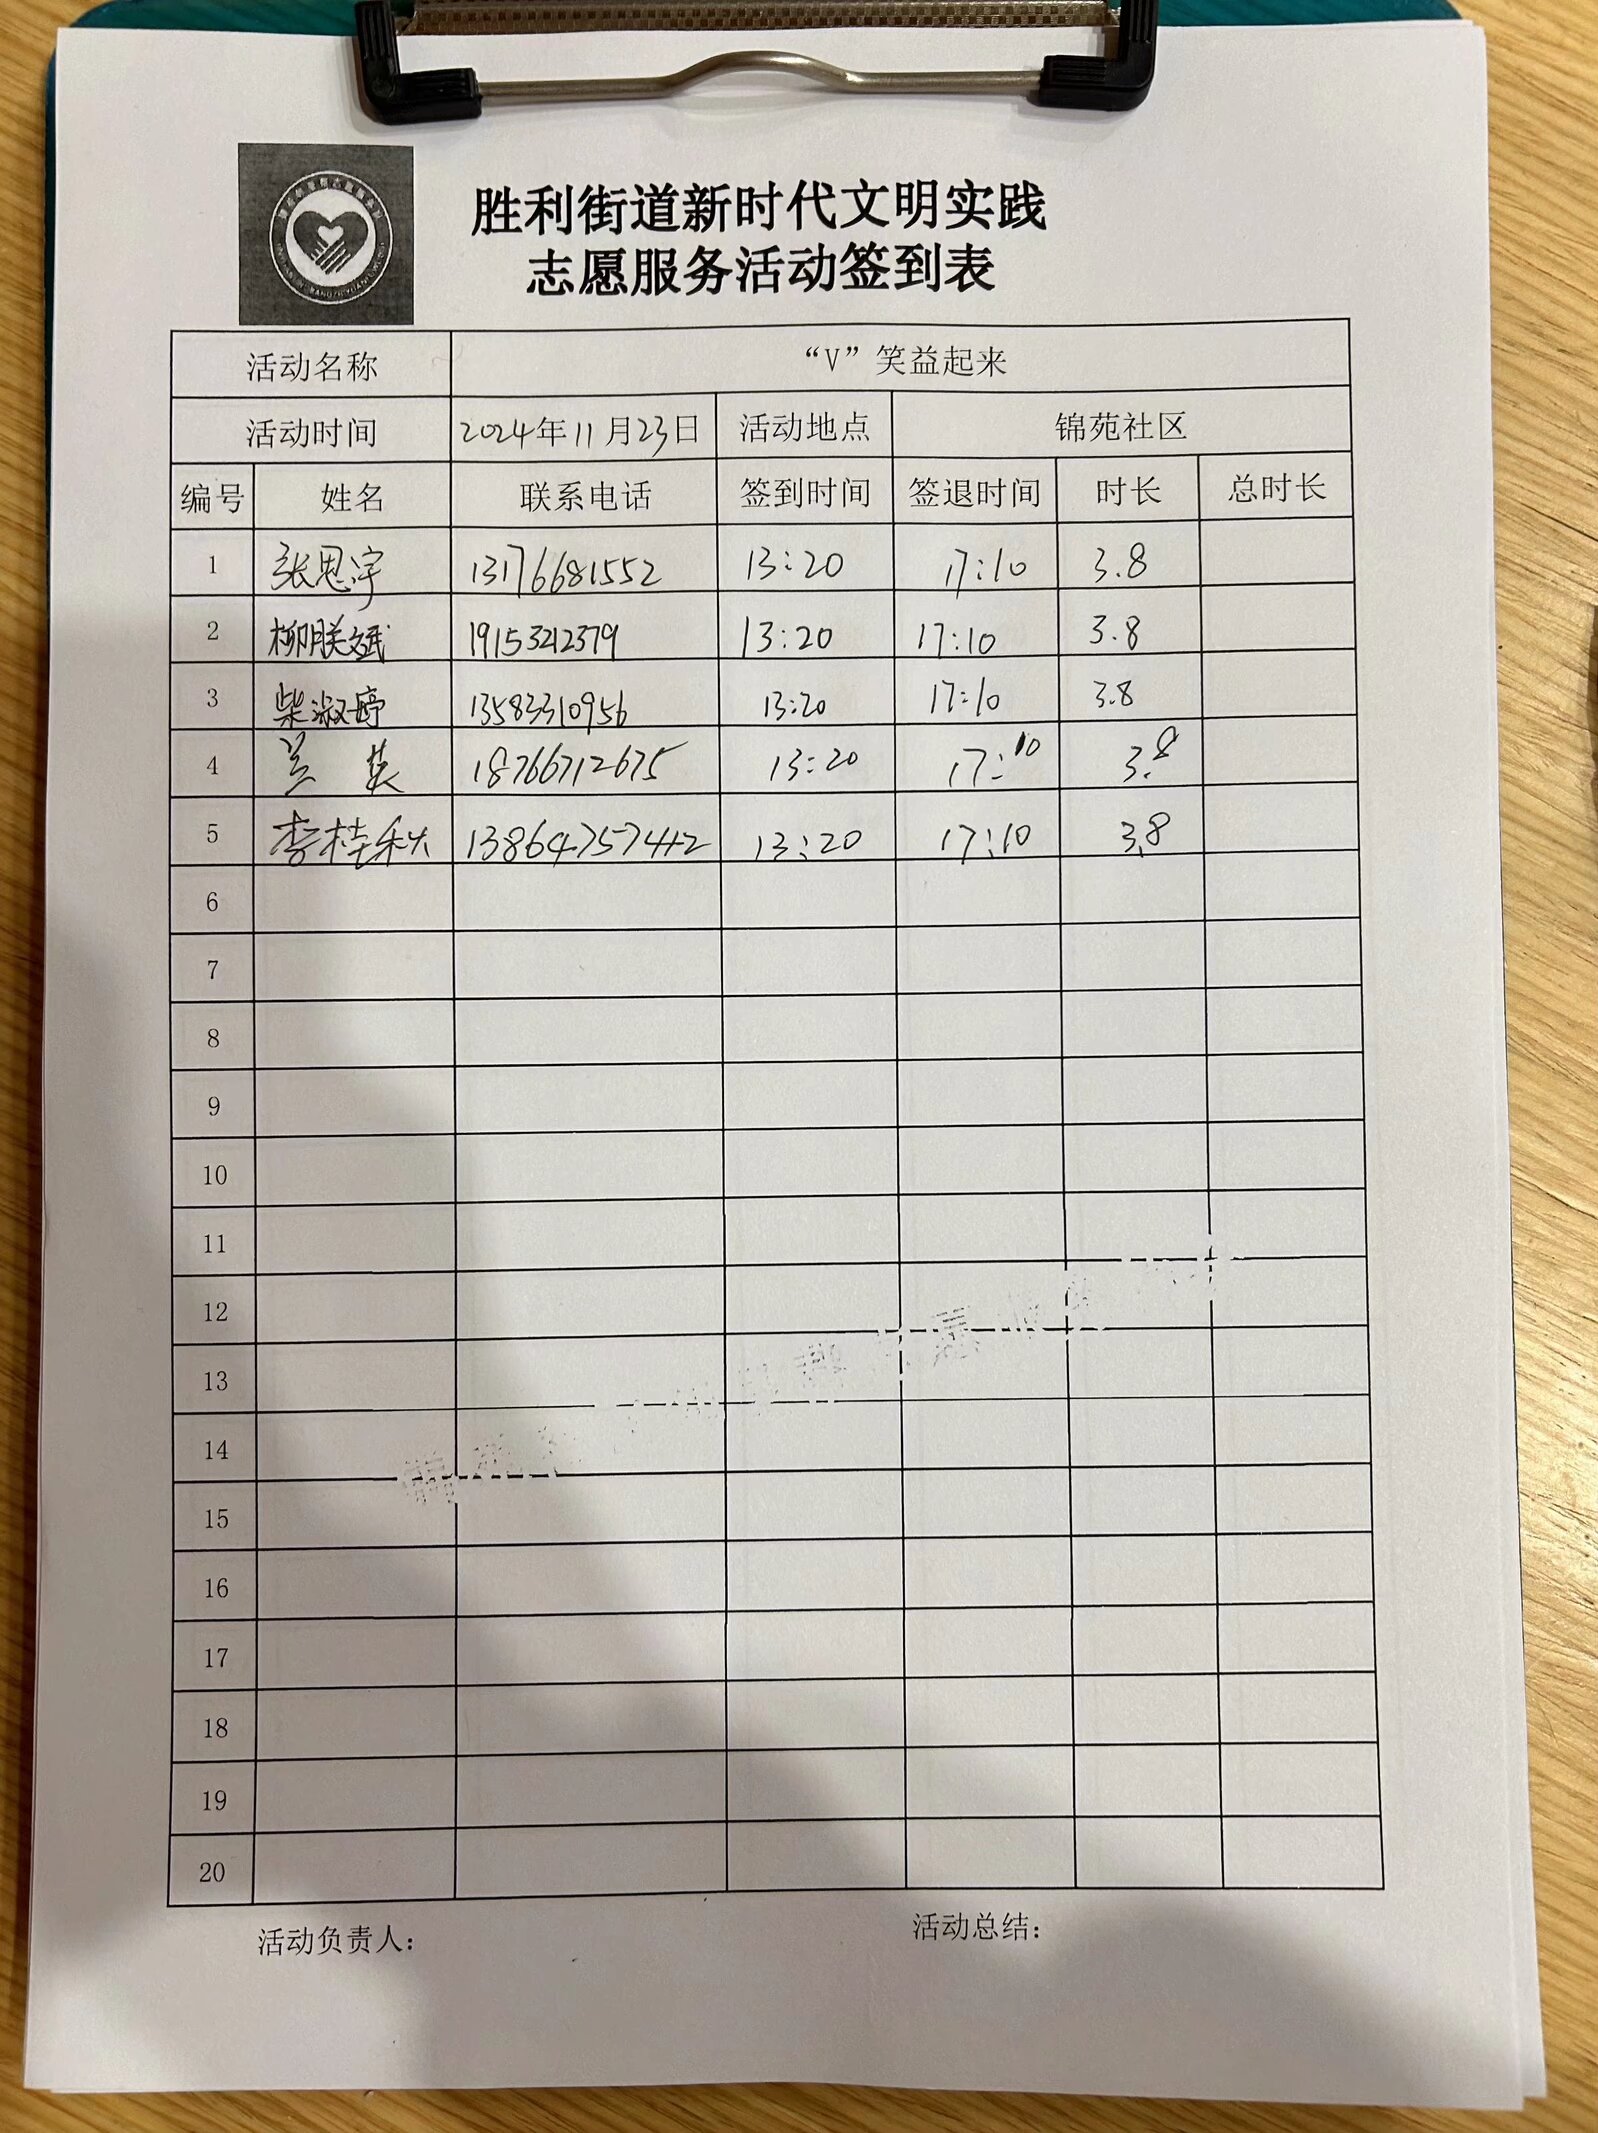 胜利街道新时代文明实践
志愿服务活动签到表
活动名称 “V”笑益起来
活动时间 2024年11月23日 活动地点 锦苑社区
编号 姓名 联系电话 签到时间 签退时间 时长 总时长
1 张思宇 13176681552 13:20 17:10 3.8
2 柳朕斌 19153212379 13:20 17:10 3.8
3 柴淑婷 13583310956 13:20 17:10 3.8
4 兰英 18766712675 13:20 17:10 3.8
5 李桂秋 13864757442 13:20 17:10 3.8
6
7
8
9
10
11
12
13
14
15
16
17
18
19
20
活动负责人： 活动总结：